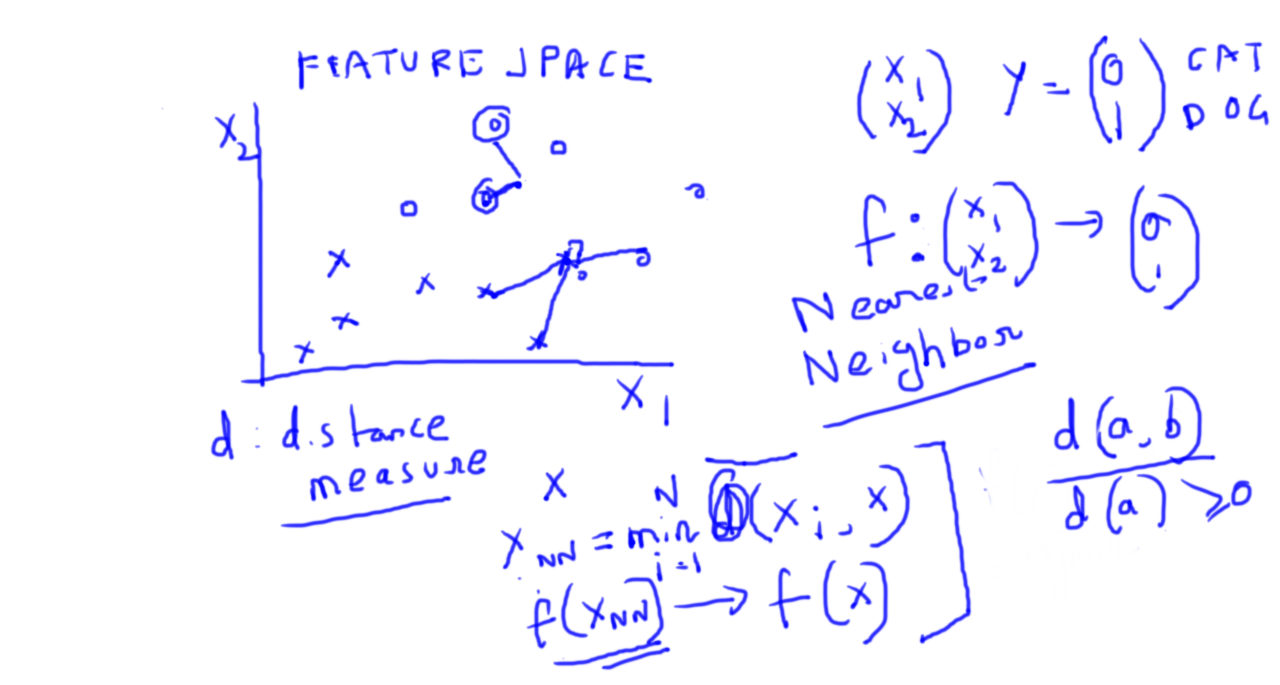 FEATURE SPACE
X2
X1
(x1 x2) Y = (0 1) CAT DOG
f : (x1 x2) → (0 1)
Nearest
Neighbor
d : distance
measure
X
X NN = min N i=1 d(xi, x)
f(xNN) → f(x)
d(a, b)
d(a) ≥ 0